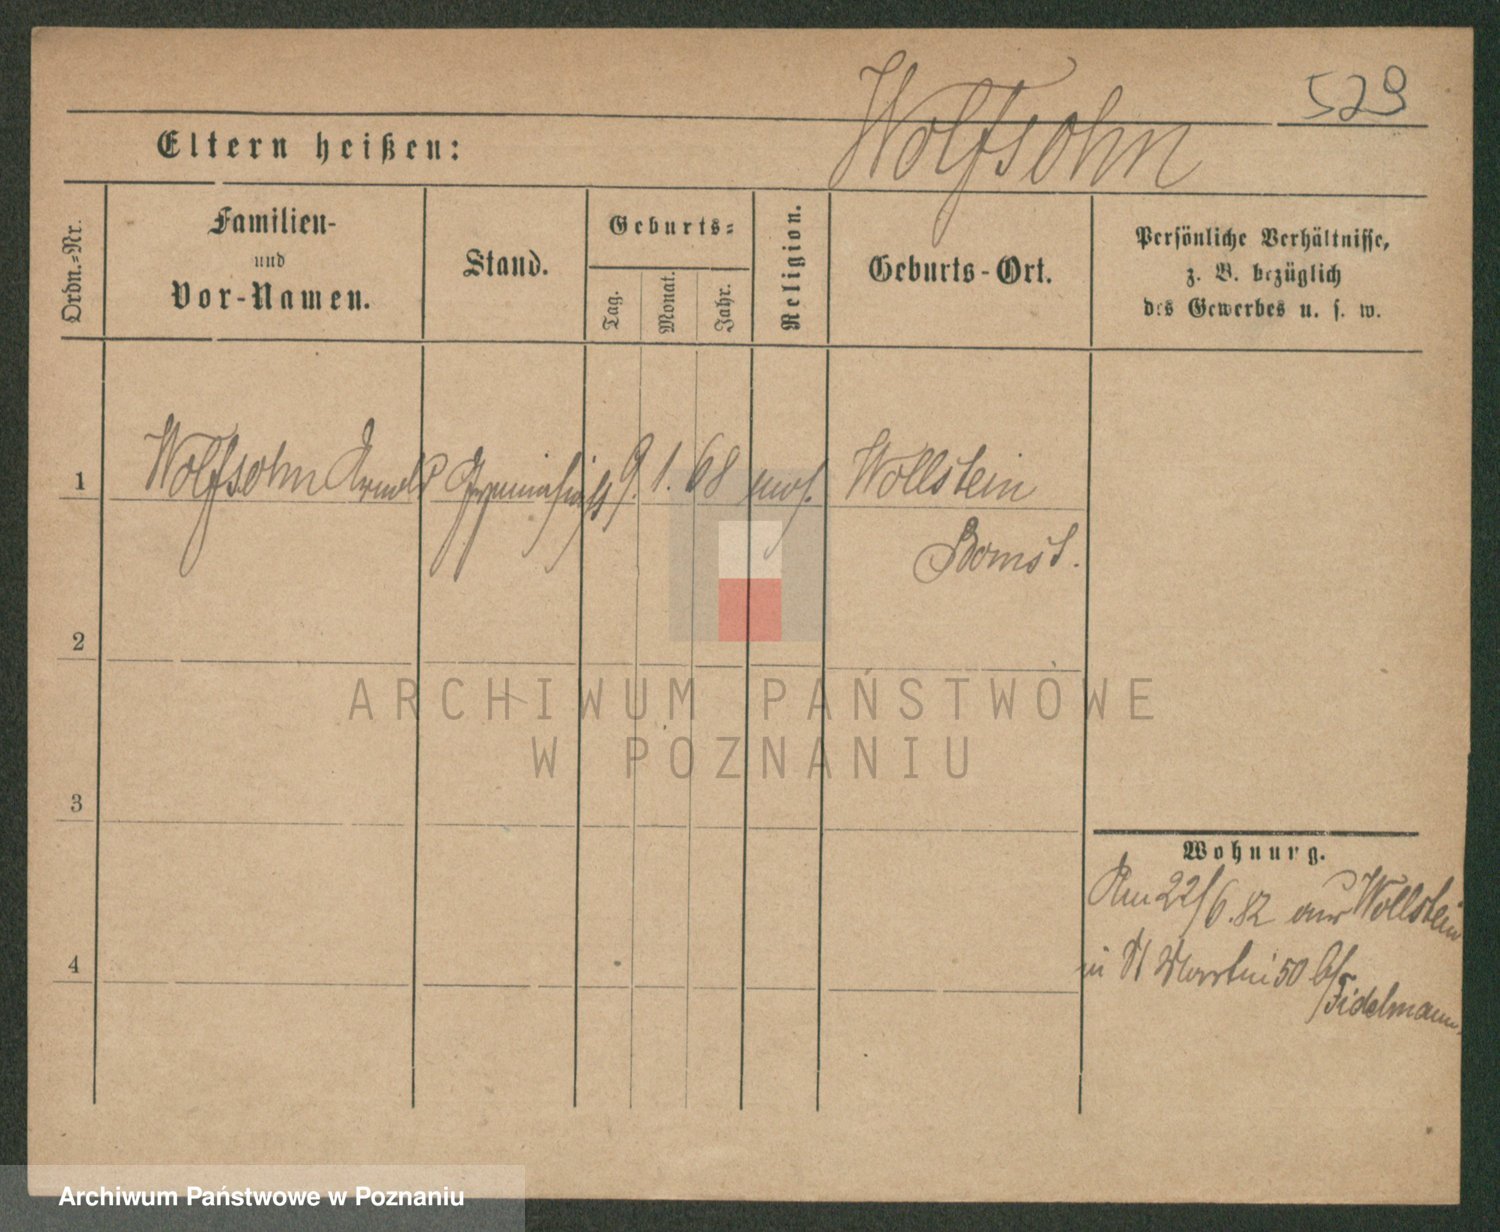 529
Wolfsohn
Eltern heißen:
Ordn.=Nr.
Familien-
und
Vor-Namen.
Stand.
Geburts=
Tag.
Monat.
Jahr.
Religion.
Geburts-Ort.
Persönliche Verhältnisse,
z. B. bezüglich
des Gewerbes u. s. w.
1 Wolfsohn Arnold Gymnasiast 9. 1. 68 mos. Wollstein
Bomst.
2
3
4
Wohnung.
Am 22/6.82 aus Wollstein
in St Martin 50 b/
Fidelmann
ARCHIWUM PAŃSTWOWE
W POZNANIU
Archiwum Państwowe w Poznaniu